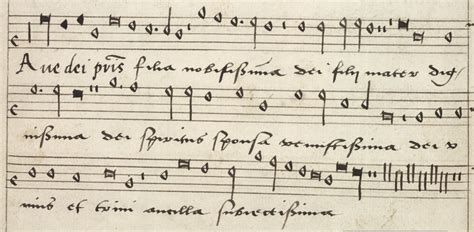 Aue dei pr̄is filia nobilissīma dei filij mater dig-
nissima dei spiritus sponsa venustissima dei v
nius et trini ancilla subiectissima